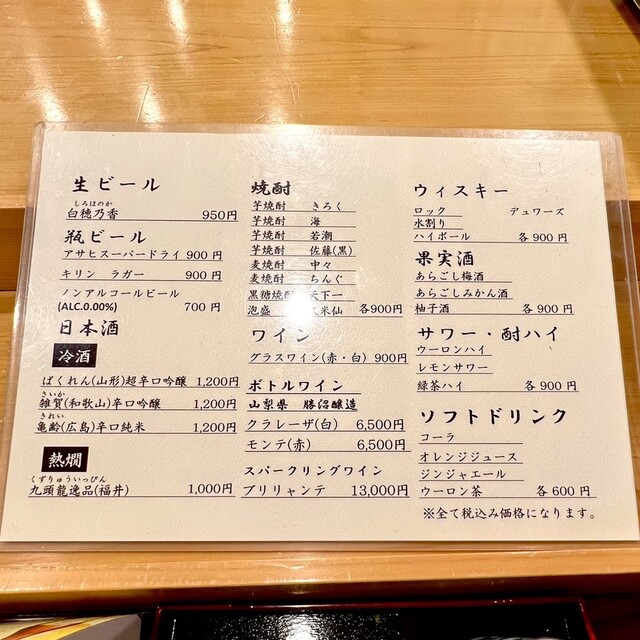 生ビール
しろほのか
白穂乃香 950円
瓶ビール
アサヒスーパードライ 900円
キリン ラガー 900円
ノンアルコールビール
(ALC.0.00%) 700円
日本酒
冷酒
ばくれん(山形)超辛口吟醸 1,200円
さいか
雑賀(和歌山)辛口吟醸 1,200円
きれい
亀齢(広島)辛口純米 1,200円
熱燗
くずりゅういっぴん
九頭龍逸品(福井) 1,000円
焼酎
芋焼酎 きろく
芋焼酎 海
芋焼酎 若潮
芋焼酎 佐藤(黒)
麦焼酎 中々
麦焼酎 ちんぐ
黒糖焼酎 天下一
泡盛 米仙 各900円
ワイン
グラスワイン(赤・白) 900円
ボトルワイン
山梨県 勝沼醸造
クラレーザ(白) 6,500円
モンテ(赤) 6,500円
スパークリングワイン
ブリリャンテ 13,000円
ウィスキー
ロック デュワーズ
水割り
ハイボール 各900円
果実酒
あらごし梅酒
あらごしみかん酒
柚子酒 各900円
サワー・酎ハイ
ウーロンハイ
レモンサワー
緑茶ハイ 各900円
ソフトドリンク
コーラ
オレンジジュース
ジンジャエール
ウーロン茶 各600円
※全て税込み価格になります。